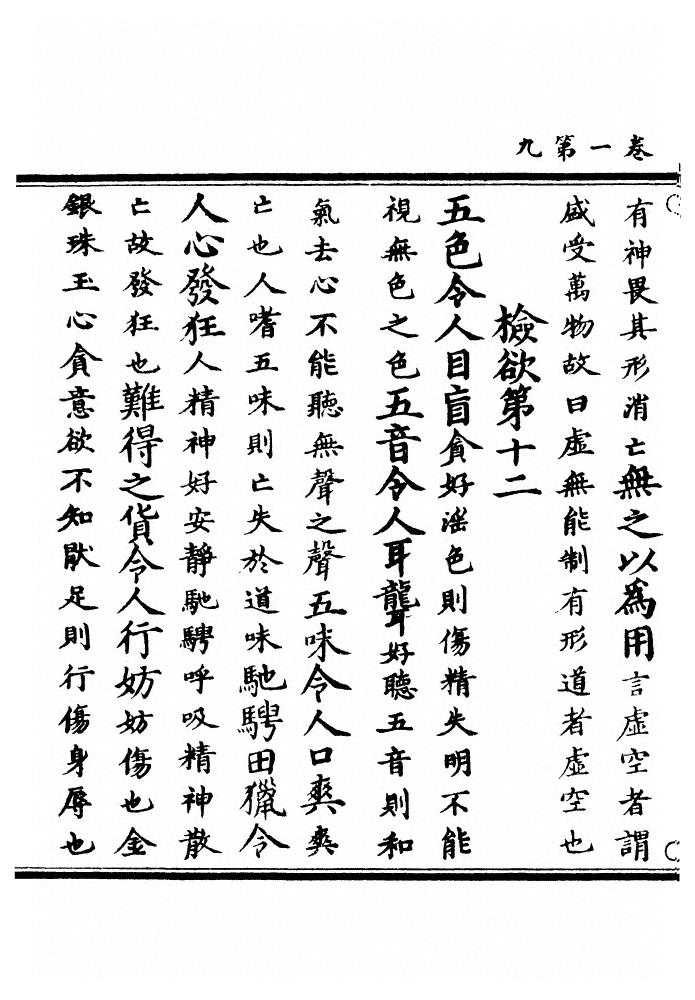 卷一第九
有神畏其形消亡無之以為用言虛空者謂
盛受萬物故曰虛無能制有形道者虛空也
檢欲第十二
五色令人目盲貪好滛色則傷精失明不能
視無色之色五音令人耳聾好聽五音則和
氣去心不能聽無聲之聲五味令人口爽爽
亡也人嗜五味則亡失於道味馳騁田獵令
人心發狂人精神好安靜馳騁呼吸精神散
亡故發狂也難得之貨令人行妨妨傷也金
銀珠玉心貪意欲不知猒足則行傷身辱也